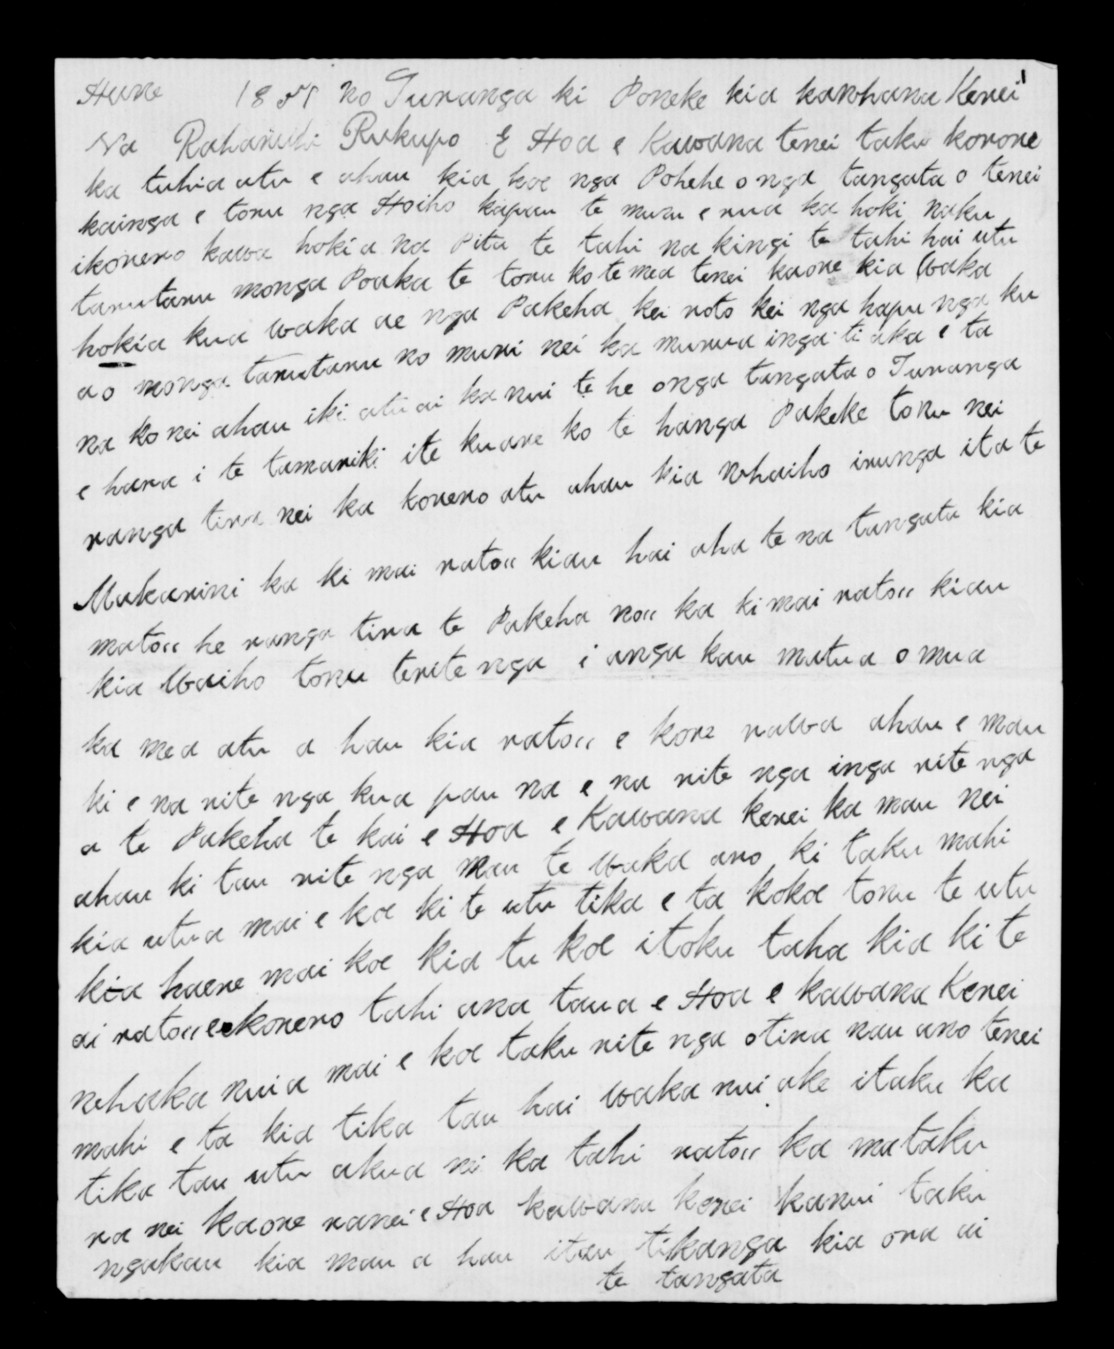 Hune 1851 no Turanga ki Poneke kia kawhana Kerei
Na Raharuhi Rukupo E Hoa e Kawana tenei taku korore
ka tuhia atu e ahau kia koe nga Pohehe o nga tangata o tenei
kainga e toru nga Hoiho kapau te muru e rua ka hoki naku
ikorero kawa hokia na Pita te tahi na kingi te tahi hai utu
tarutaru monga Poaka te toru ko te mea tenei kaore kia Waka
hokia kua waka ae nga Pakeha kei roto kei nga hapu nga ku
ao monga tarutaru no muri nei ka murua inga ti aka e ta
na ko nei ahau iki atu ai ka nui te he onga tangata o Turanga
e hara i te tamariki ite kuare ko te hanga Pakeke toku nei
ranga tira nei ka korero atu ahau kia Whaiho irunga ita te
Makarini ka ki mai ratou kiau hai aha te na tangata kia
matou he ranga tira te Pakeha nou ka ki mai ratou kiau
kia Waiho tonu terite nga i anga kau matua o mua
ka mea atu a hau kia ratou e kore rawa ahau e mau
ki e na rite nga kua pau na e na rite nga inga rite nga
a te Pakeha te kai e Hoa e Kawana kerei ka mau nei
ahau ki tau rite nga Mau te waka aro ki taku mahi
kia utua mai e koe ki te utu tika e ta kokoe tonu te utu
kia haere mai koe kia tu koe itoku taha kia ki te
ai ratou e korero tahi ana taua e Hoa e kawana Kerei
whaka nuia mai e koe taku rite nga otira nau ano tenei
mahi e ta kia tika tau hai waka nui ake itaku ka
tika tau utu akua ni ka tahi ratou ka mataku
ra nei kaore ranei e Hoa kawana kerei kanui taku
ngakau kia mau a hau itau tikanga kia ora ai
te tangata